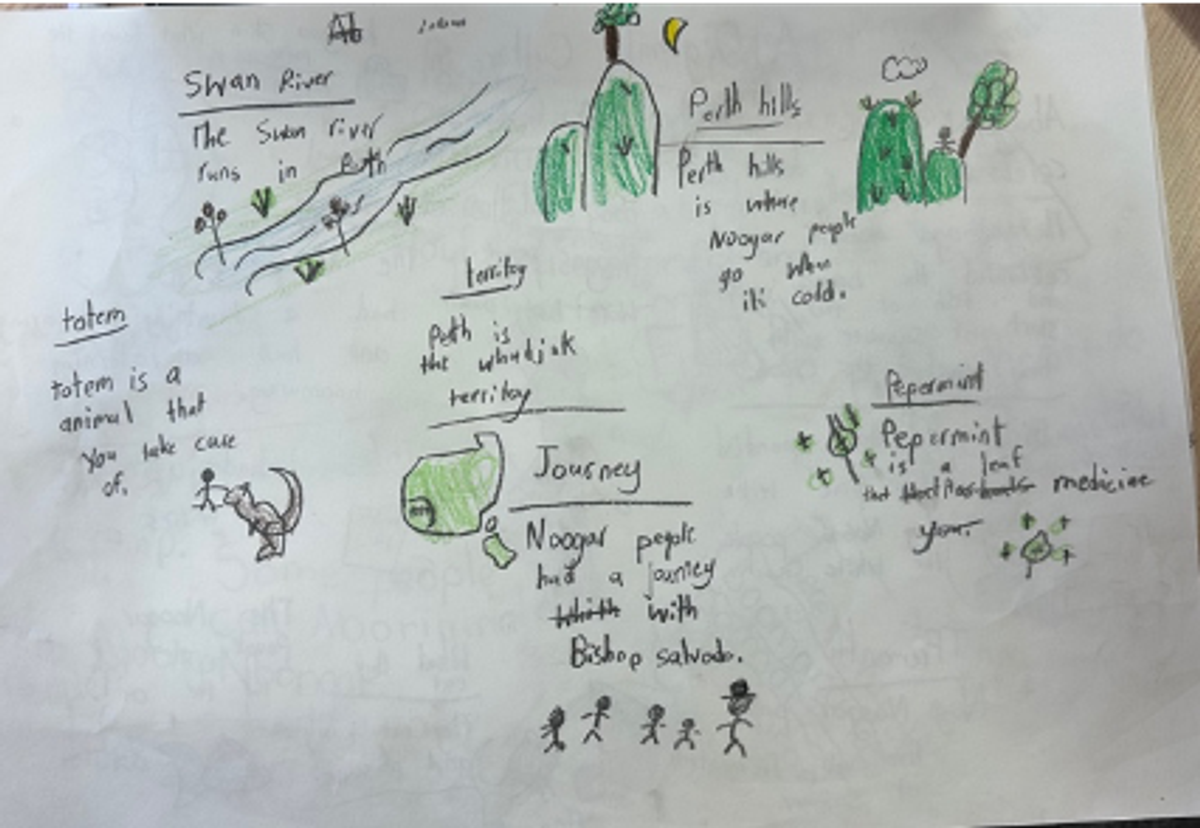 Swan River
The Swan river
runs in Perth
Perth hills
Perth hills
is where
Noogar people
go when
its cold.
territoy
Perth is
the whadjuk
territoy
totem
totem is a
animal that
you take care
of.
Journey
Noogar people
had a journey
with
Bishop salvado.
Pepermint
Pepermint
is a leaf
that medicine
your